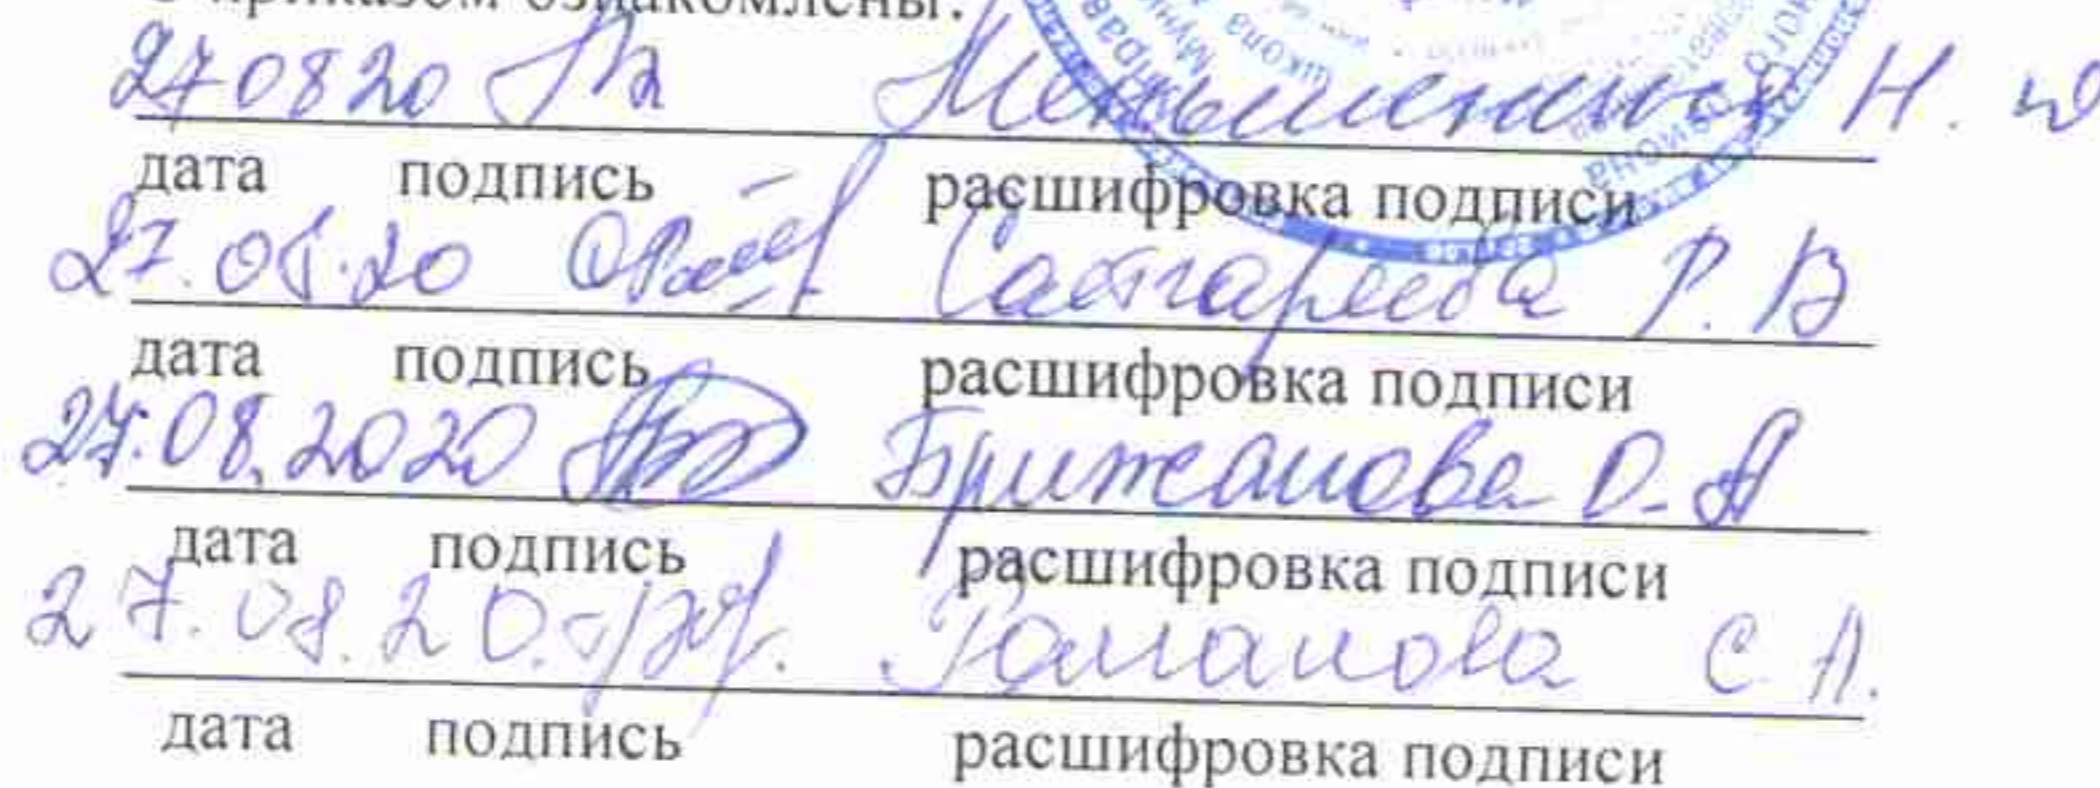 приказом ознакомлены:
270820 Меньшенина Н. Ю
дата подпись расшифровка подписи
27.08.20 Састгареева Р. В
дата подпись расшифровка подписи
27.08.2020 Брижанова О. А
дата подпись расшифровка подписи
27.08.20. Романова С А.
дата подпись расшифровка подписи
школа